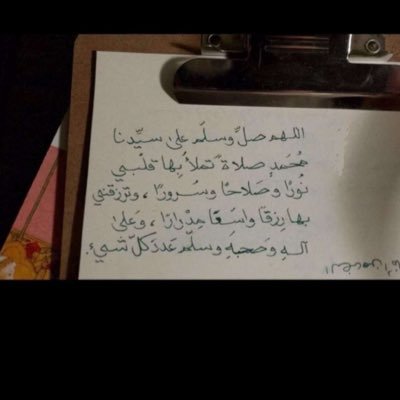 اللهم صلِّ وسلّم على سيّدنا
مُحمدٍ صلاةً تملأ بها قلبي
نُورًا وصَلاحًا وسُرورًا ، وترزقني
بها رِزقًا واسَعًا مِدْرارًا ، وَعلىٰ
آلهِ وَصحبهِ وسلّم عَددَ كلّ شيءٍ.